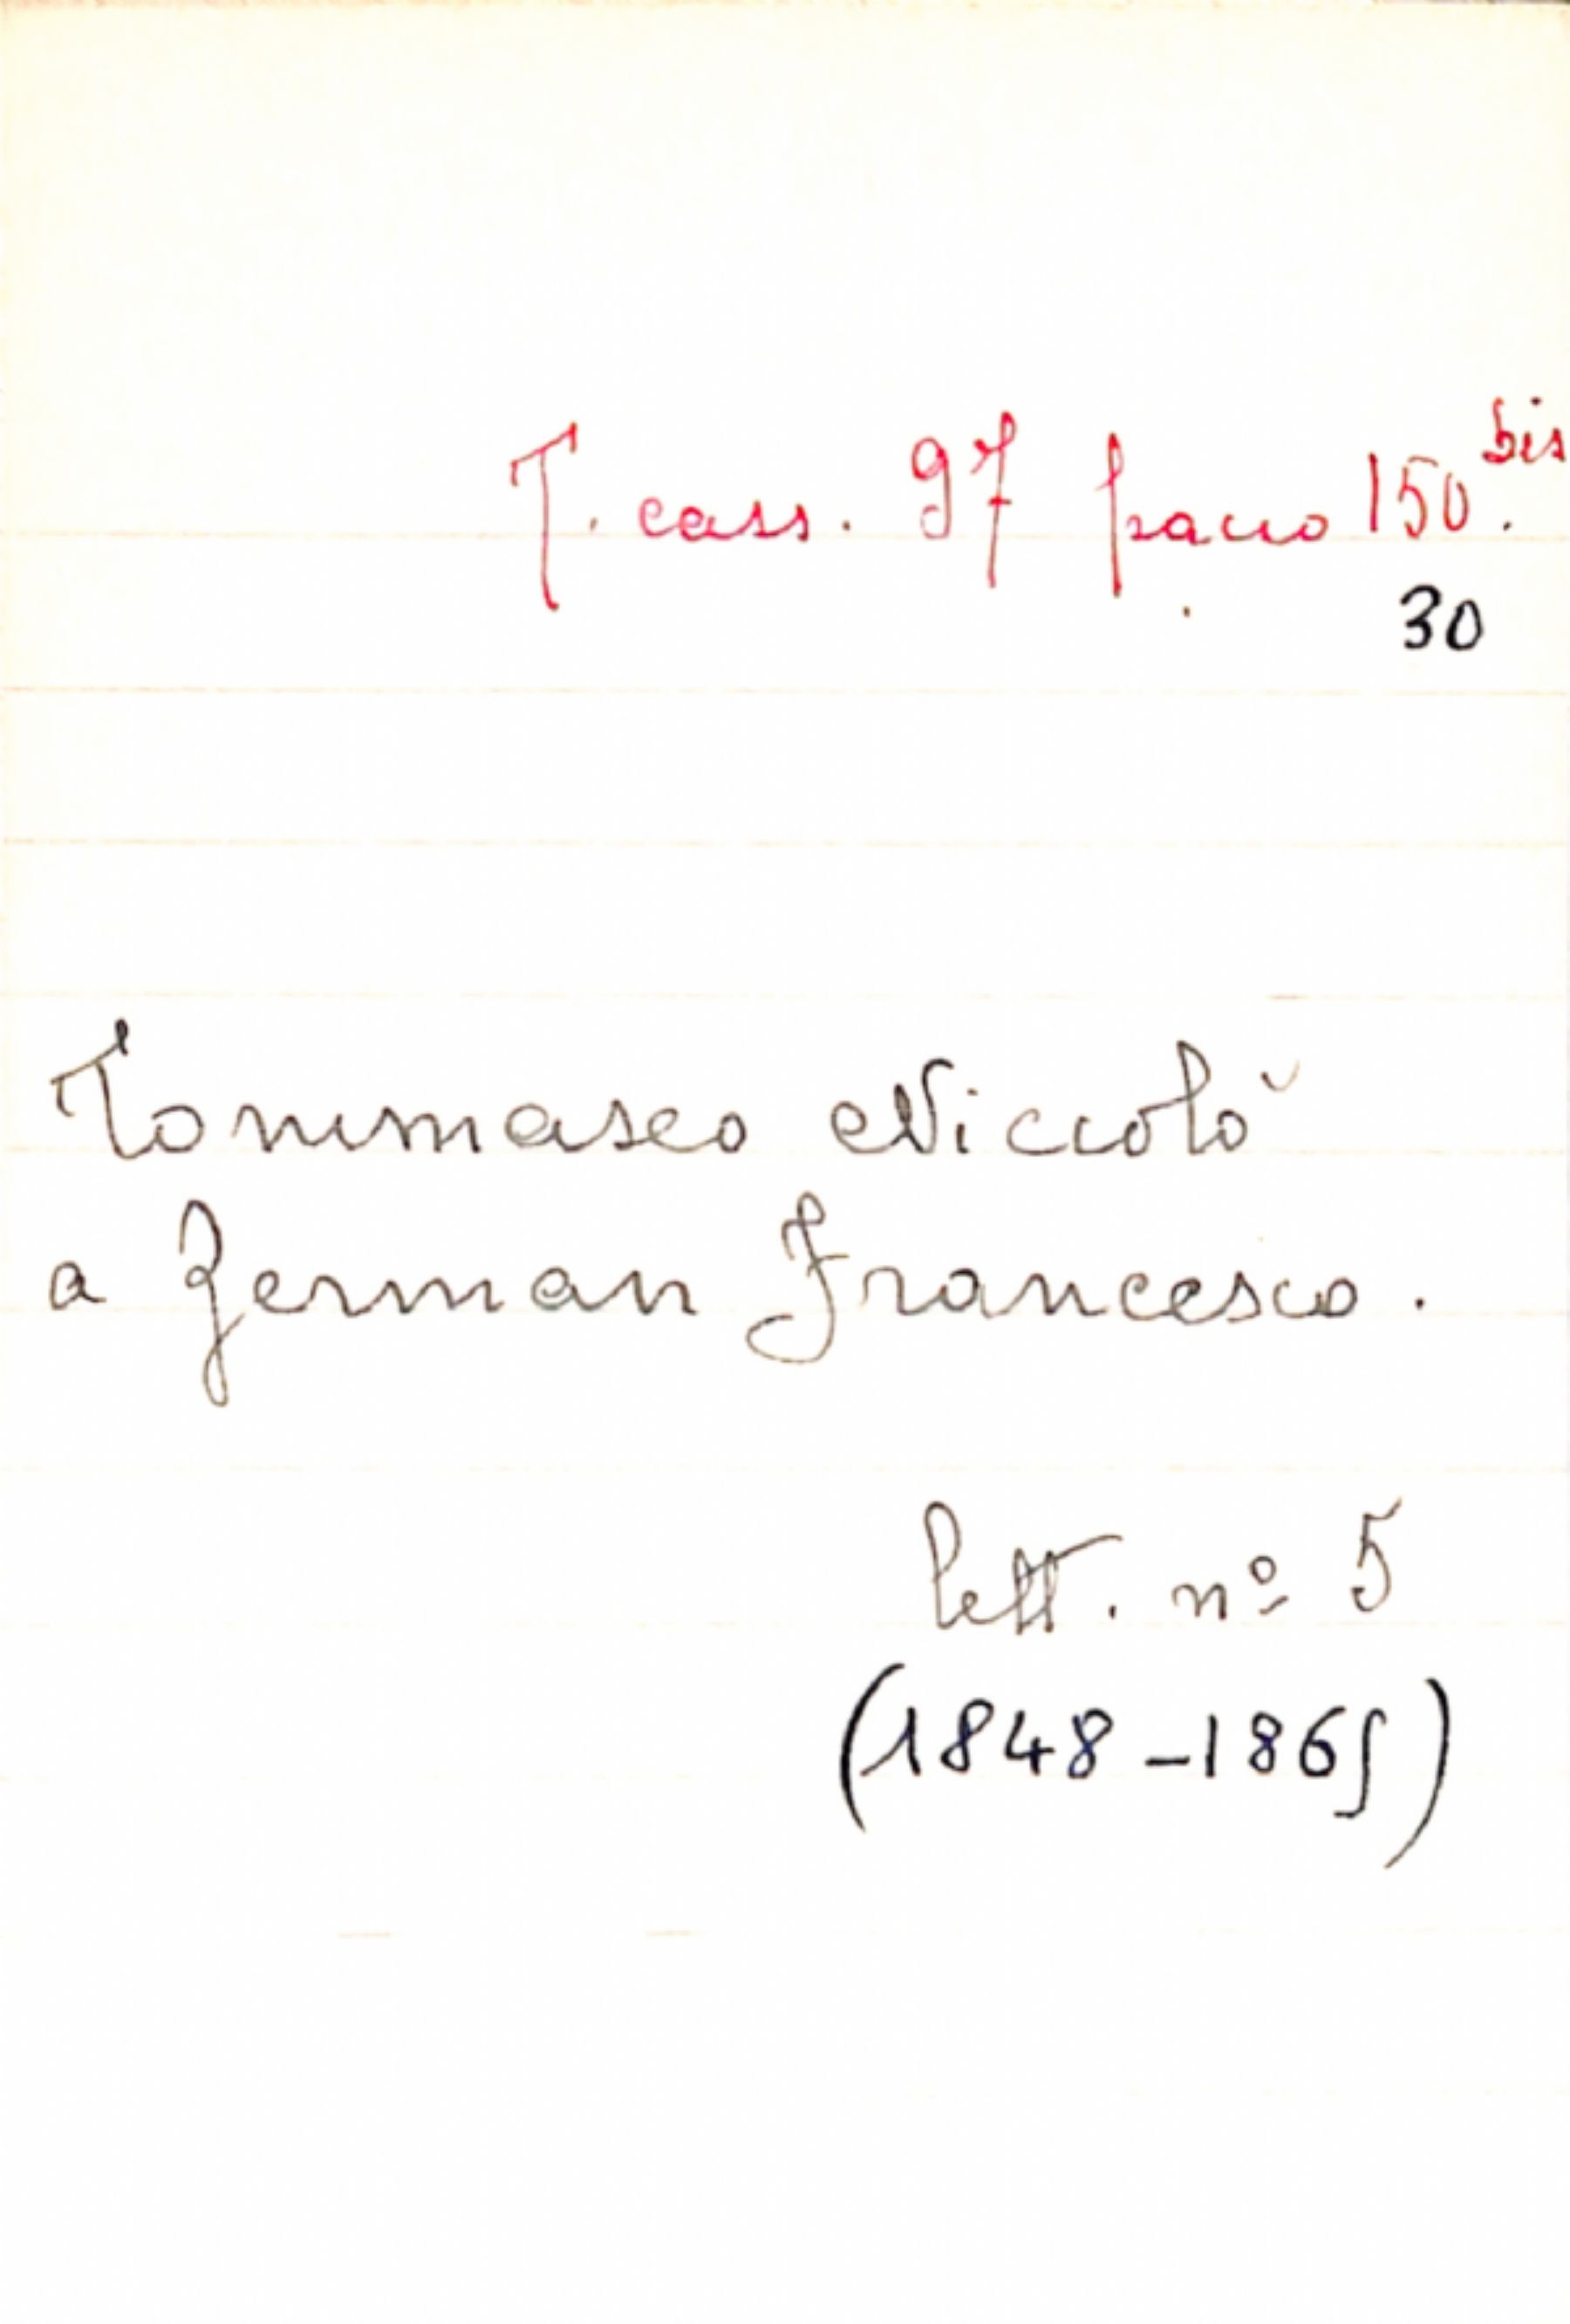 T. cass. 97 pacco 150 bis.
30
Tommaseo Niccolò
a Zerman Francesco.
lett. nº 5
(1848-1865)